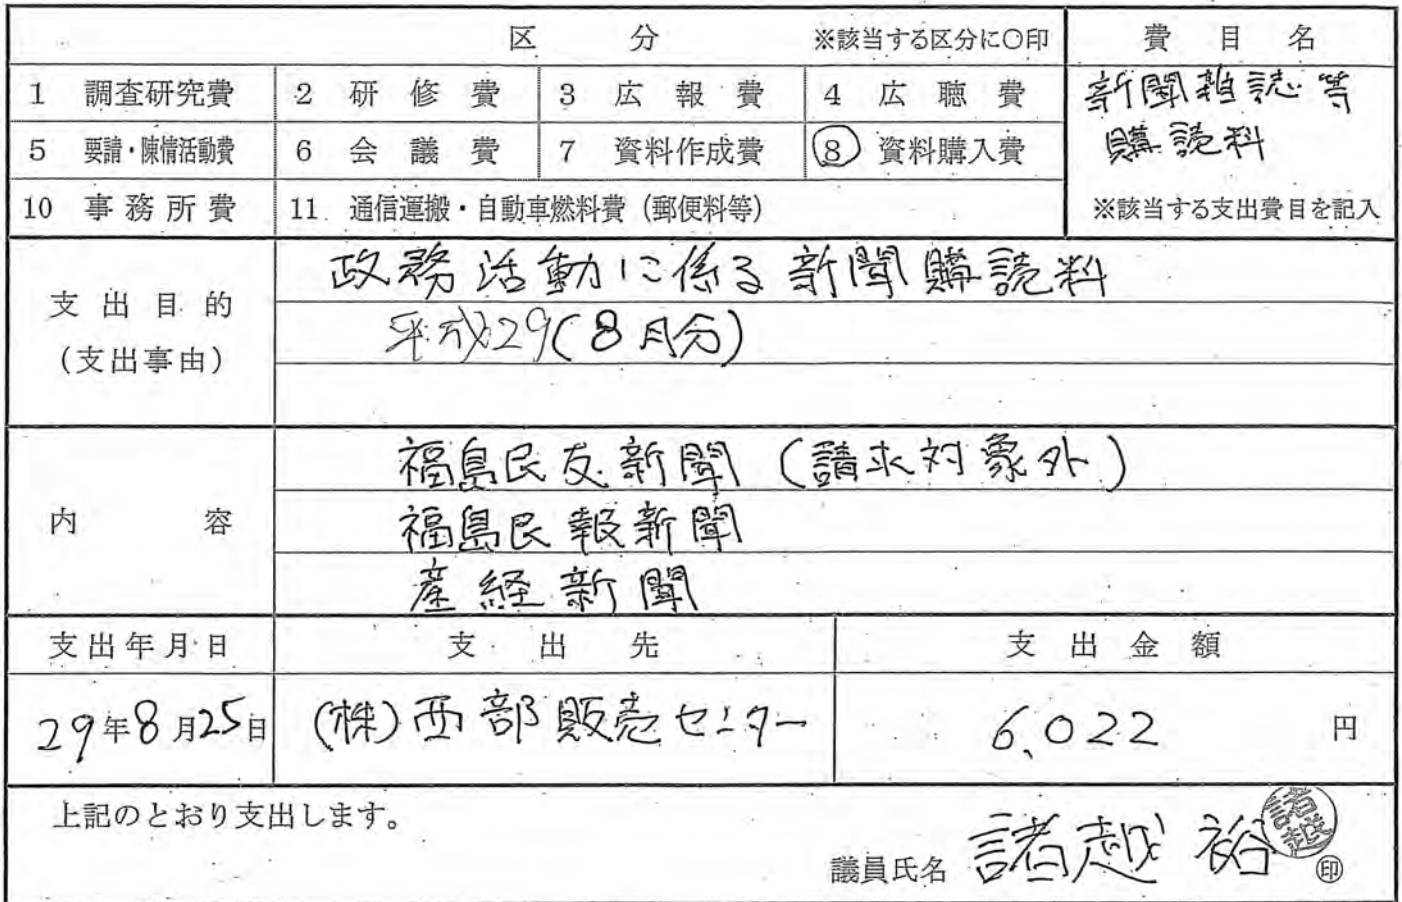 区 分 ※該当する区分に○印 費 目 名
1 調査研究費 2 研 修 費 3 広 報 費 4 広 聴 費 新聞雑誌等
5 要請・陳情活動費 6 会 議 費 7 資料作成費 8 資料購入費 購読料
10 事 務 所 費 11 通信運搬・自動車燃料費(郵便料等) ※該当する支出費目を記入
支 出 目 的
(支出事由)
政務活動に係る新聞購読料
平成29(8月分)
内 容
福島民友新聞(請求対象外)
福島民報新聞
産経新聞
支出年月日 支 出 先 支 出 金 額
29年8月25日 (株)西部販売センター 6,022 円
上記のとおり支出します。
議員氏名 諸越 裕 諸越 印